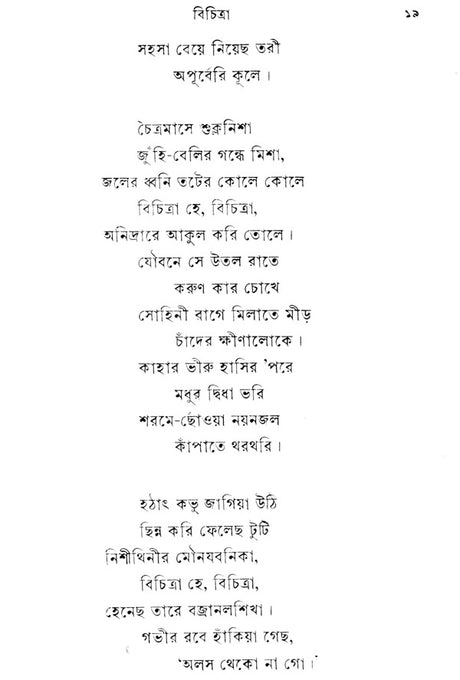 বিচিত্রা ১৯
সহসা বেয়ে নিয়েছ তরী
অপূর্বেরি কূলে।
চৈত্রমাসে শুক্লনিশা
জুঁহি-বেলির গন্ধে মিশা,
জলের ধ্বনি তটের কোলে কোলে
বিচিত্রা হে, বিচিত্রা,
অনিদ্রারে আকুল করি তোলে।
যৌবনে সে উতল রাতে
করুণ কার চোখে
সোহিনী রাগে মিলাতে মীড়
চাঁদের ক্ষীণালোকে।
কাহার ভীরু হাসির 'পরে
মধুর দ্বিধা ভরি
শরমে-ছোঁওয়া নয়নজল
কাঁপাতে থরথরি।
হঠাৎ কভু জাগিয়া উঠি
ছিন্ন করি ফেলেছ টুটি
নিশীথিনীর মৌনযবনিকা,
বিচিত্রা হে, বিচিত্রা,
হেনেছ তারে বজ্রানলশিখা।
গভীর রবে হাঁকিয়া গেছ,
'অলস থেকো না গো।'